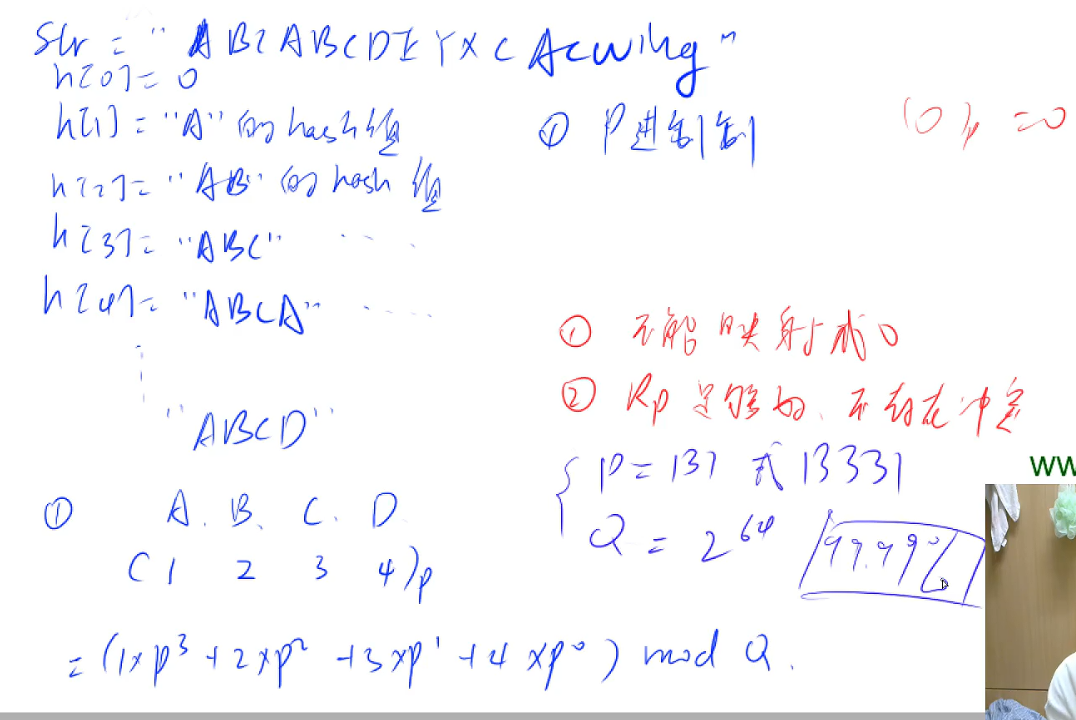 Str = "ABCABCDEYXCAcwing"
h[0] = 0
h[1] = "A" 的 hash值
① P进制制
(0)p = 0
h[2] = "AB" 的 hash 值
h[3] = "ABC" ....
h[4] = "ABCA" ....
① 不能映射成0
"ABCD"
② Rp足够好、不存在冲突
P = 131 或 13331
WW
① A. B. C. D
Q = 2^64
99.99%
(1 2 3 4)p
= (1×p^3 + 2×p^2 + 3×p^1 + 4×p^0) mod Q.